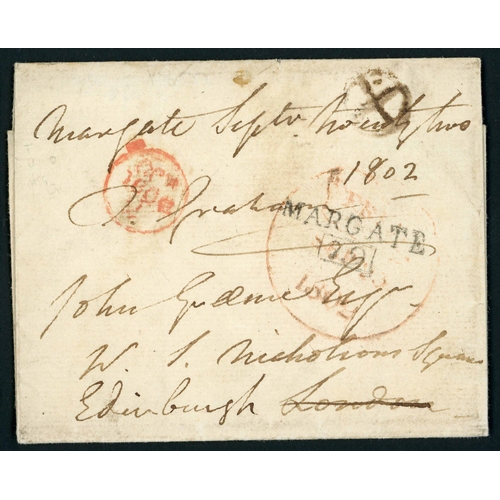 Margate Septr twenty two
1802
Graham
MARGATE
John Græme Esqr
W. S. Nicholsons Square
Edinburgh London